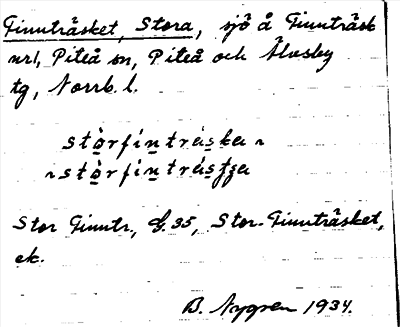 Finnträsket, Stora, sjö å Finnträsk
nr1, Piteå sn, Piteå och Älvsby
tg, Norrb. l.
stòrfìntráska ~
~ stòrfìntrásʒa
Stor Finntr., G. 35, Stor-Finnträsket,
ek.
B. Nygren 1934.